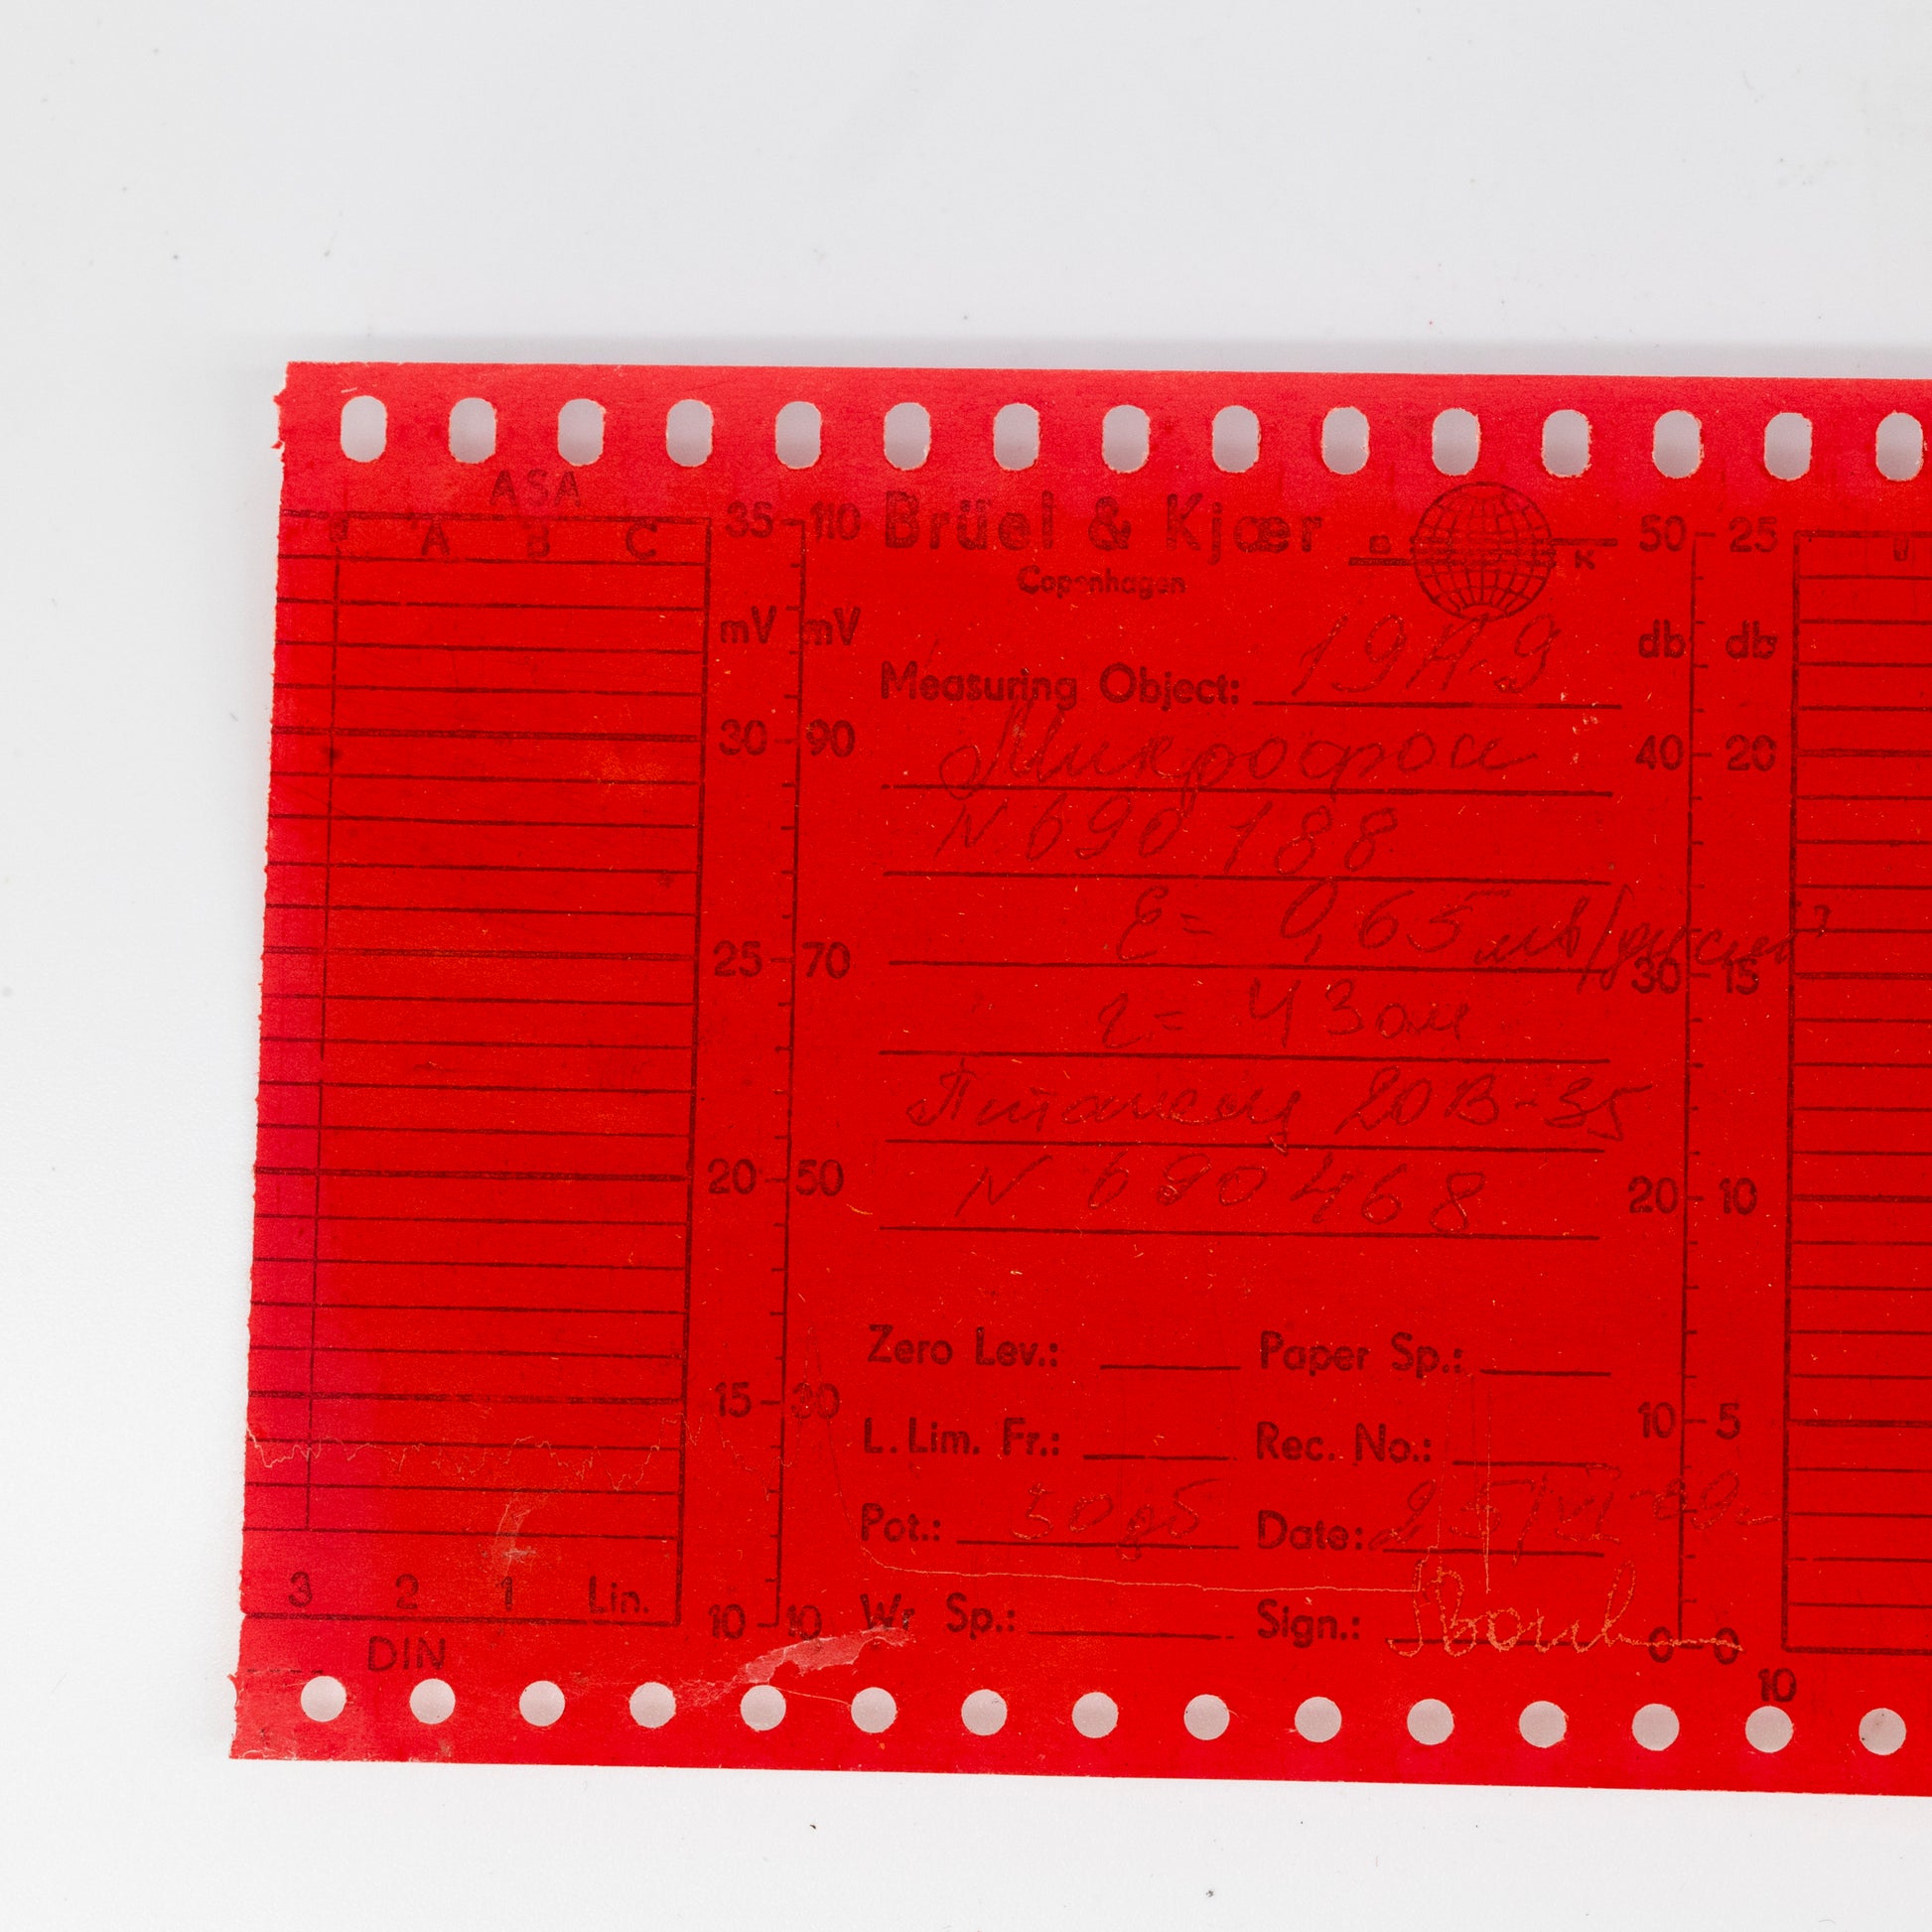 ASA
A B C
35 110
mV mV
30 90
25 70
20 50
15 30
10 10
3 2 1 Lin.
DIN
Brüel & Kjær
Copenhagen
B K
Measuring Object: 19А-9
Микрофон
N 690188
E= 0,65 мв/дн см²
r= 43 ом
20В-35
N 690468
Zero Lev.: Paper Sp.:
L. Lim. Fr.: Rec. No.:
Pot.: 50 дб Date: 25/VI
Wr Sp.: Sign.:
50 25
db db
40 20
30 15
20 10
10 5
0 0
10